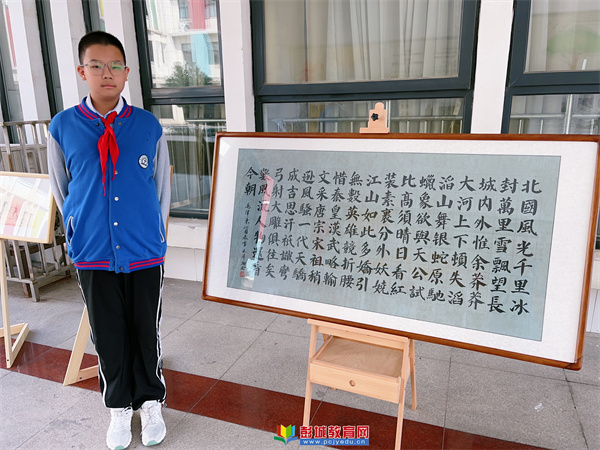 北國風光千里冰
封萬里雪飄望長
城内外惟余莽莽
大河上下頓失滔
滔山舞银蛇原馳
蠟象欲與天公試
比高須晴日看紅
装素裹分外妖娆
江山如此多嬌引
無數英雄競折腰
惜秦皇漢武略輸
文采唐宗宋祖稍
逊風騷一代天驕
成吉思汗祇識彎
弓射大雕俱往矣
數風流人物還看
今朝
彭城教育网
www.pcjyedu.cn